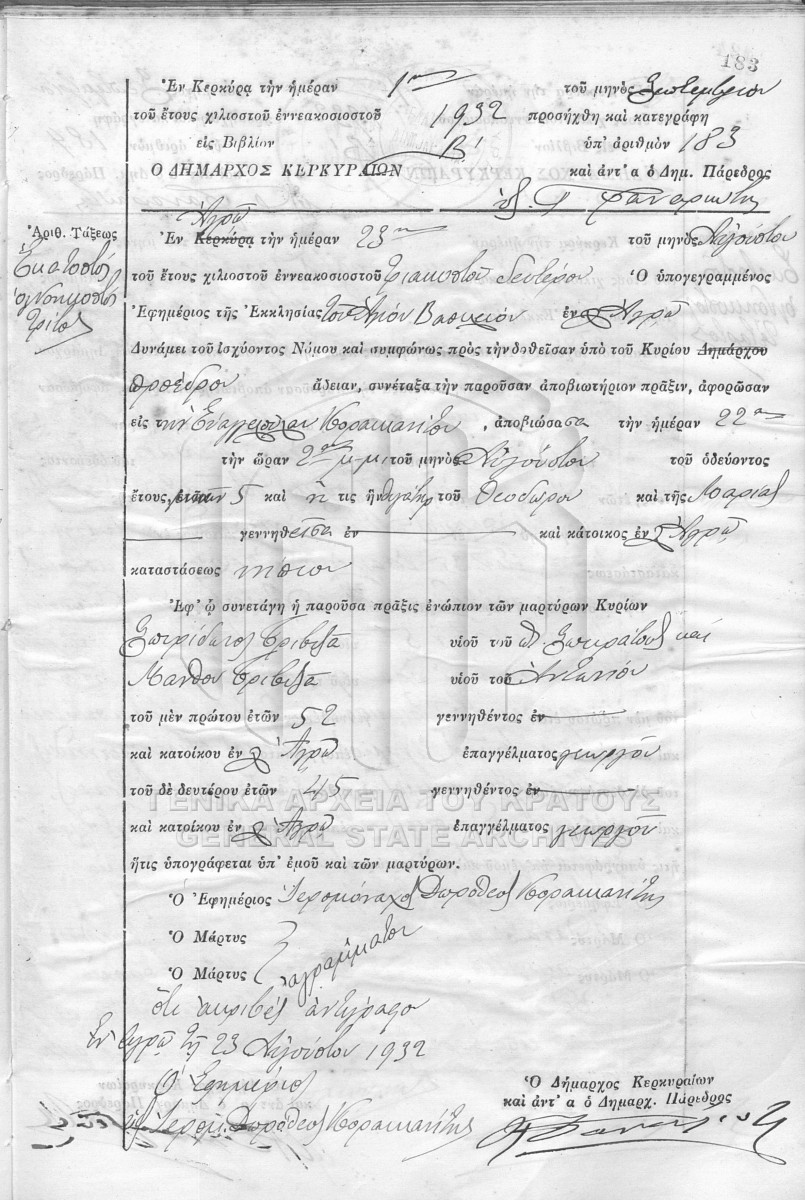 183
Ἐν Κερκύρᾳ τὴν ἡμέραν 1ην τοῦ μηνὸς Σεπτεμβρίου
τοῦ ἔτους χιλιοστοῦ ἐννεακοσιοστοῦ 1932 προσήχθη καὶ κατεγράφη
εἰς Βιβλίον Β' ὑπ' ἀριθμὸν 183
Ὁ ΔΗΜΑΡΧΟΣ ΚΕΡΚΥΡΑΙΩΝ καὶ ἀντ' α ὁ Δημ. Πάρεδρος
Ἀριθ. Τάξεως
Ἑκατοστὸς
ὀγδοηκοστὸς
τρίτος
Ἀγρῷ
Ἐν Κερκύρᾳ τὴν ἡμέραν 23ην τοῦ μηνὸς Αὐγούστου
τοῦ ἔτους χιλιοστοῦ ἐννεακοσιοστοῦ τριακοστοῦ δευτέρου Ὁ ὑπογεγραμμένος
Ἐφημέριος τῆς Ἐκκλησίας τῶν Ἁγίων Βασιλείου ἐν Ἀγρῷ
Δυνάμει τοῦ ἰσχύοντος Νόμου καὶ συμφώνως πρὸς τὴν δοθεῖσαν ὑπὸ τοῦ Κυρίου Δημάρχου
προέδρου ἄδειαν, συνέταξα τὴν παροῦσαν ἀποβιωτήριον πρᾶξιν, ἀφορῶσαν
εἰς τὴν Εὐαγγελίαν Κορακιανίτου, ἀποβιώσασα τὴν ἡμέραν 22αν
τὴν ὥραν 2αν μ.μ. τοῦ μηνὸς Αὐγούστου τοῦ ὁδεύοντος
ἔτους, ἐτῶν 5 καὶ ἥ τις ἦν θυγάτηρ τοῦ Θεοδώρου καὶ τῆς Μαρίας
γεννηθεῖσα ἐν καὶ κάτοικος ἐν Ἀγρῷ
καταστάσεως νήπιον
Ἐφ' ᾧ συνετάγη ἡ παροῦσα πρᾶξις ἐνώπιον τῶν μαρτύρων Κυρίων
Σπυρίδωνος Τριβιζᾶ υἱοῦ τοῦ π Σωκράτους καὶ
Μάνθου Τριβιζᾶ υἱοῦ τοῦ Ἀντωνίου
τοῦ μὲν πρώτου ἐτῶν 52 γεννηθέντος ἐν
καὶ κατοίκου ἐν Ἀγρῷ ἐπαγγέλματος γεωργοῦ
τοῦ δὲ δευτέρου ἐτῶν 45 γεννηθέντος ἐν
καὶ κατοίκου ἐν Ἀγρῷ ἐπαγγέλματος γεωργοῦ
ἥτις ὑπογράφεται ὑπ' ἐμοῦ καὶ τῶν μαρτύρων.
Ὁ Ἐφημέριος Ἱερομόναχος Δωρόθεος Κορακιανίτης
Ὁ Μάρτυς
Ὁ Μάρτυς ἀγράμματοι
Ὅτι ἀκριβὲς ἀντίγραφο
Ἐν Ἀγρῷ τῇ 23 Αὐγούστου 1932
Ὁ Ἐφημέριος
Ἱερομ. Δωρόθεος Κορακιανίτης
Ὁ Δήμαρχος Κερκυραίων
καὶ ἀντ' α ὁ Δημαρχ. Πάρεδρος
ΓΕΝΙΚΑ ΑΡΧΕΙΑ ΤΟΥ ΚΡΑΤΟΥΣ
GENERAL STATE ARCHIVES